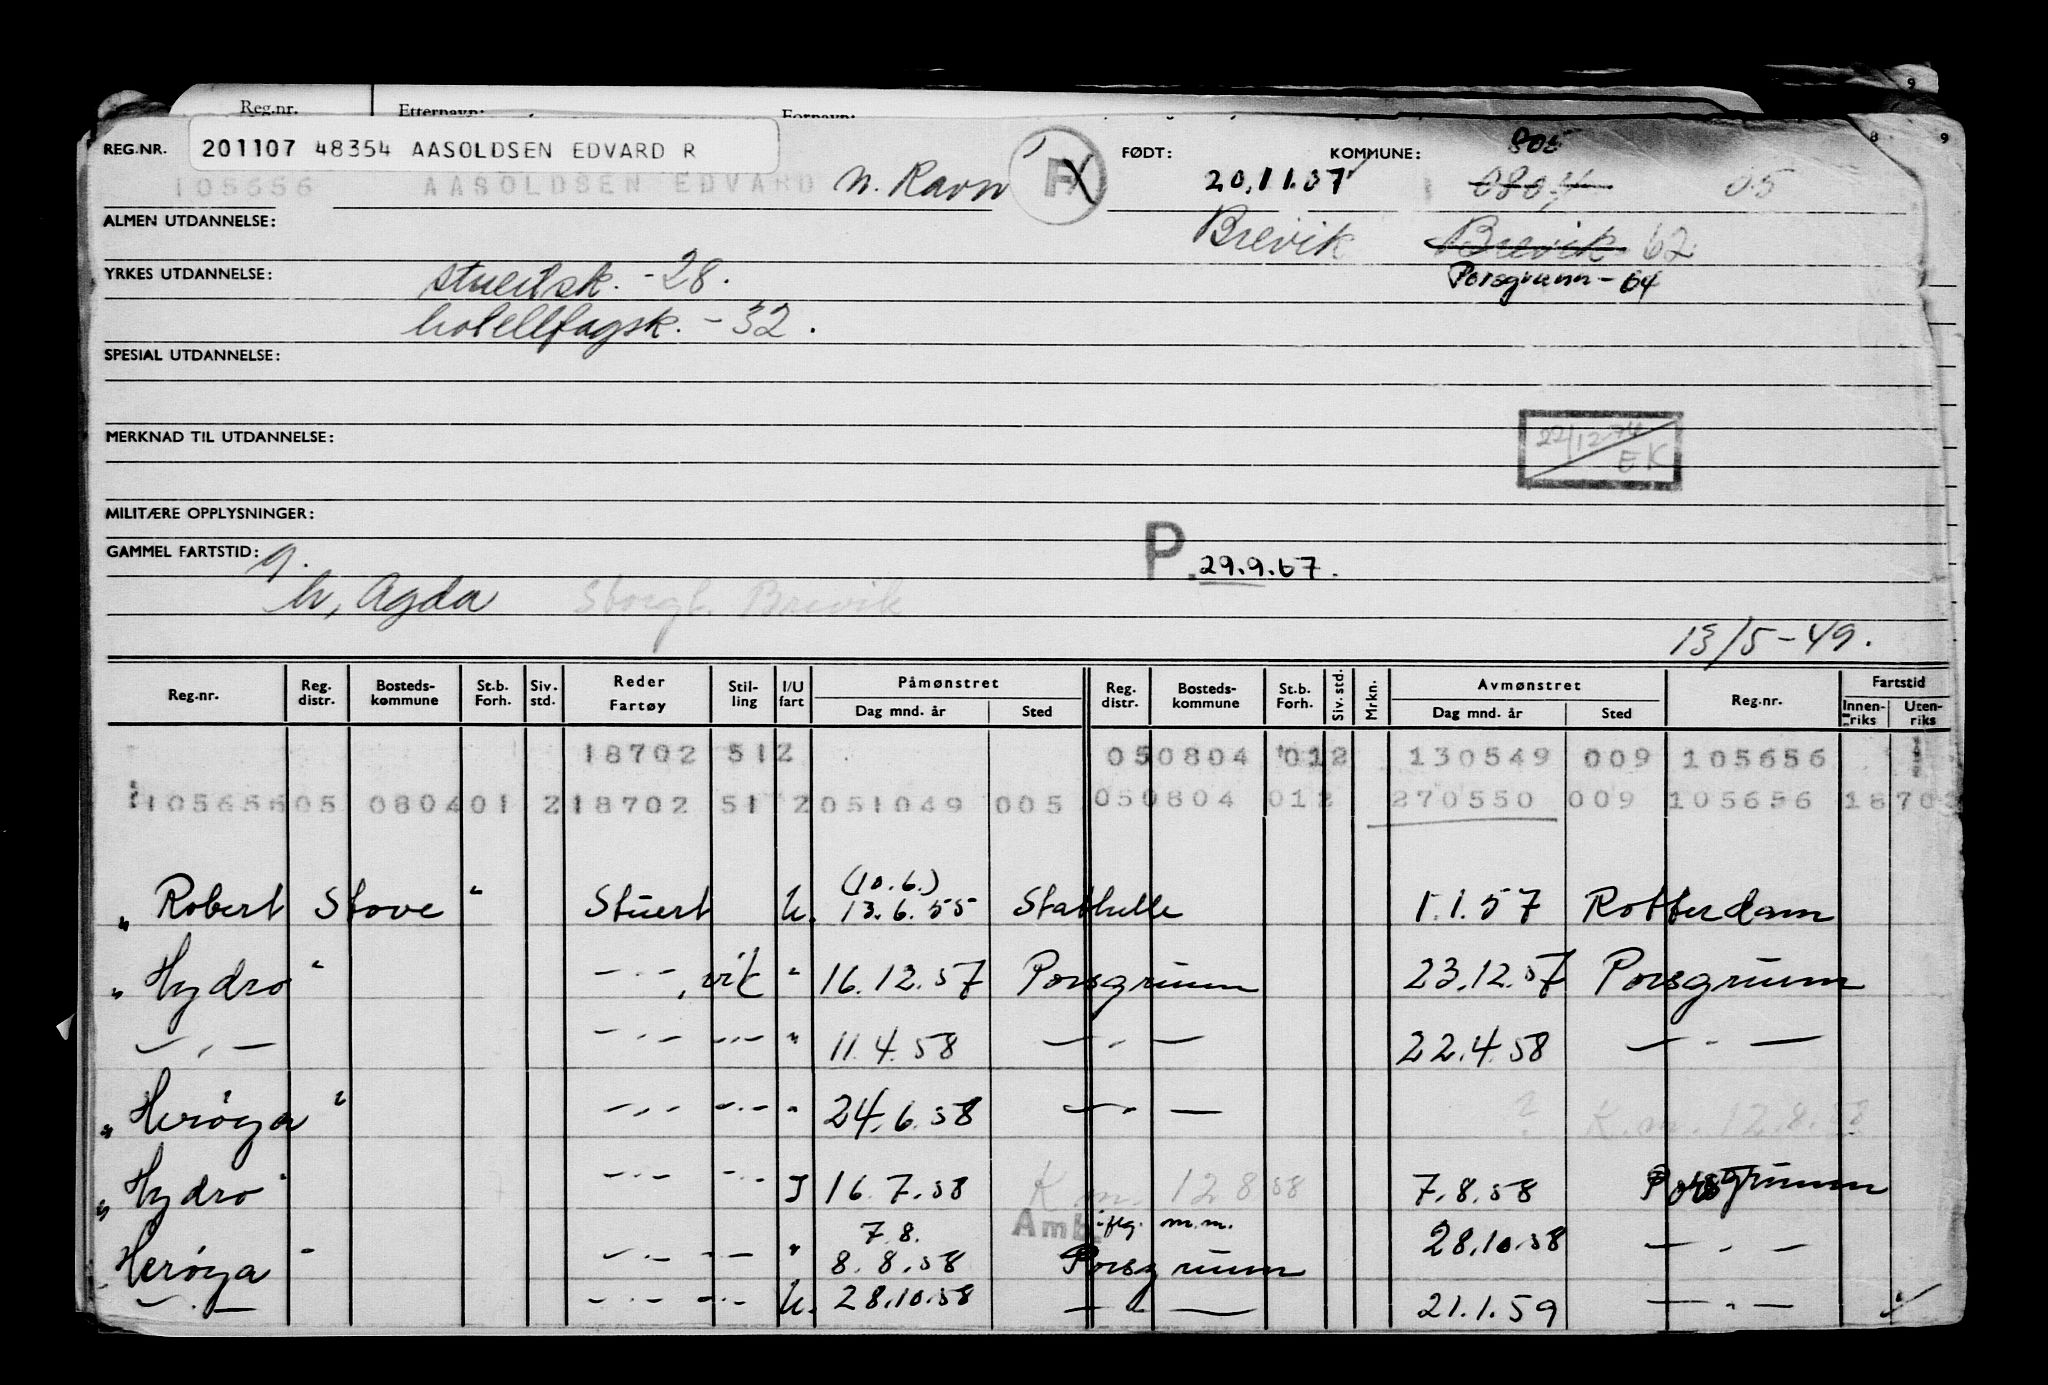 Reg.nr. Etternavn: Fornavn: 9
REG.NR. 201107 48354 AASOLDSEN EDVARD R FØDT: KOMMUNE: 805 8 9
105656 AASOLDSEN EDVARD N. Ravn 20.11.07 0804 05
ALMEN UTDANNELSE: Brevik Brevik 62
YRKES UTDANNELSE: stuertsk. -28. Porsgrunn - 64
hotellfagsk. - 32.
SPESIAL UTDANNELSE:
MERKNAD TIL UTDANNELSE: 22/12-74 EK
MILITÆRE OPPLYSNINGER:
GAMMEL FARTSTID: g. P. 29.9.67.
h, Agda Storgt, Brevik
13/5-49.
Reg.nr. Reg. distr. Bosteds- kommune St.b. Forh. Siv. std. Reder Fartøy Stil- ling I/U fart Påmønstret Dag mnd. år Sted Reg. distr. Bosteds- kommune St.b. Forh. Siv. std. Mrkn. Avmønstret Dag mnd. år Sted Reg.nr. Fartstid Innen- riks Uten- riks
18702 512 050804 012 130549 009 105656
105656 05 0804 01 2 18702 51 2 051049 005 050804 012 270550 009 105656 18702
" Robert Stove " Stuert U. (10.6.) 13.6.55 Stathelle 1.1.57 Rotterdam
" Hydro " —.— , vik " 16.12.57 Porsgrunn 23.12.57 Porsgrunn
— . — —.— —.— " 11.4.58 — . — 22.4.58 — . —
" Herøya " —.— —.— " 24.6.58 — . — ? K.m. 12.8.58
" Hydro " —.— —.— I 16.7.58 K.m. 12 8 58 7.8.58 Porsgrunn
Amb. iflg. m.m.
" Herøya " —.— —.— " 7.8. 8.8.58 Porsgrunn 28.10.58 — . —
— . — —.— —.— U. 28.10.58 — . — 21.1.59 — . —